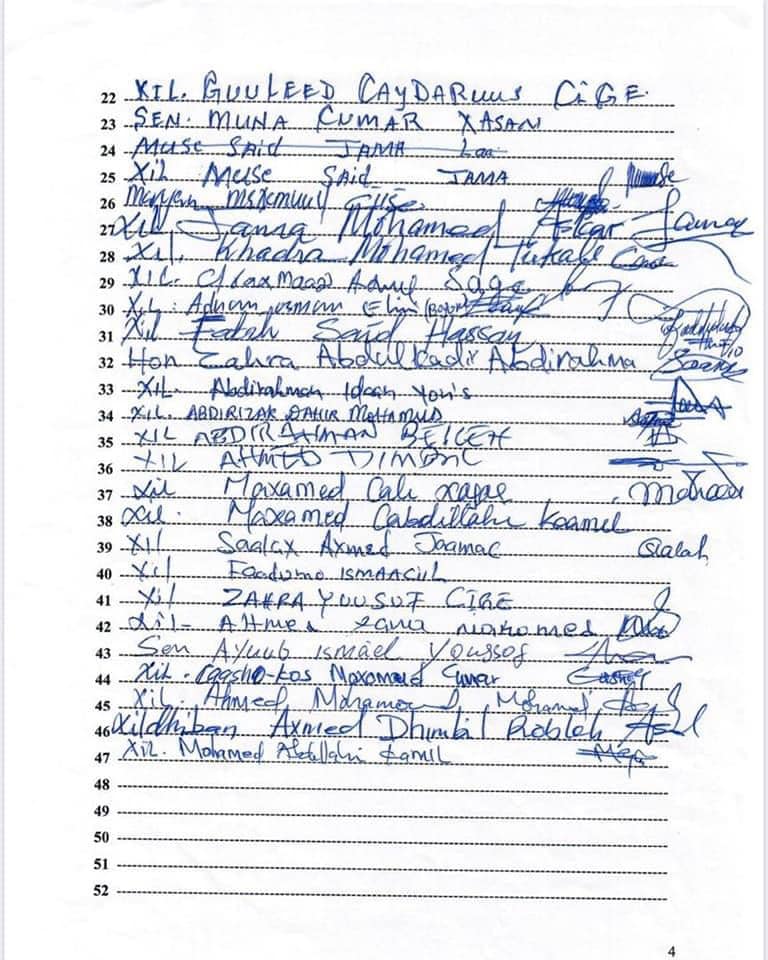 22 XIL. GUULEED CAYDARUUS CIGE
23 SEN. MUNA CUMAR XASAN
24 MUSE SAID JAMA
25 XIL MUSE SAID JAMA
26 Maryan
27 Xil Janna Mohamed Askar
28 Xil. Khadra Mohamed Tukale
29 XIL.
30 XIL. Adnan osman Elmi
31 Xil Fatah Said Hassan
32 Hon Zahra Abdulkadir Abdirahma
33 XIL. Abdirahman Idaan Yonis
34 XIL. ABDIRIZAK DAHIR MOHAMUD
35 XIL ABDIRAHMAN BEILEH
36 XIL AHMED
37 Xil Maxamed Cali
38 Xil. Maxamed Cabdillahi Kaamil
39 XIL Saalax Axmed Jaamac Salah
40 Xil Faadumo ISMAACIIL
41 Xil ZAHRA YOUSUF CIGE
42 Xil- AHmed mahomed
43 Sen Ayuub ismael Youssof
44 Xil. Maxamed Cumar
45 Xil. Ahmed Mohamoud Mohamed
46 Xildhiban Axmed Dhimbil Robleh
47 XIL. Mohamed Abdillahi Kamil
48
49
50
51
52
4